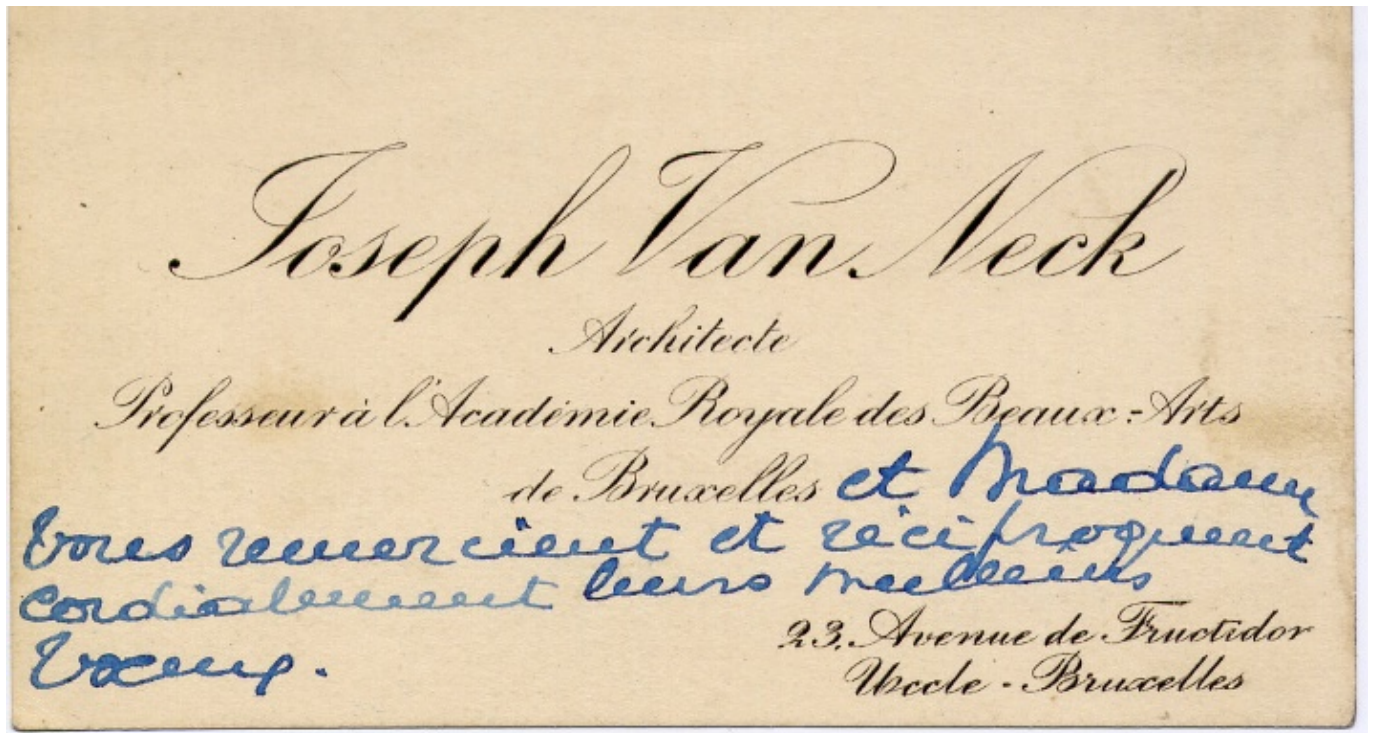 Joseph Van Neck
Architecte
Professeur à l'Académie Royale des Beaux-Arts
de Bruxelles et Madame
vous remercient et réciproquent
cordialement leurs meilleurs
vœux.
23, Avenue de Fructidor
Uccle - Bruxelles